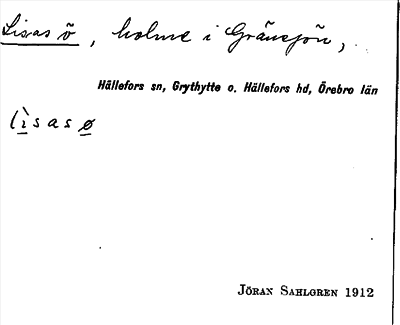 Lisas ö, holme i Gränsjön,
Hällefors sn, Grythytte o. Hällefors hd, Örebro län
lìsasø
JÖRAN SAHLGREN 1912